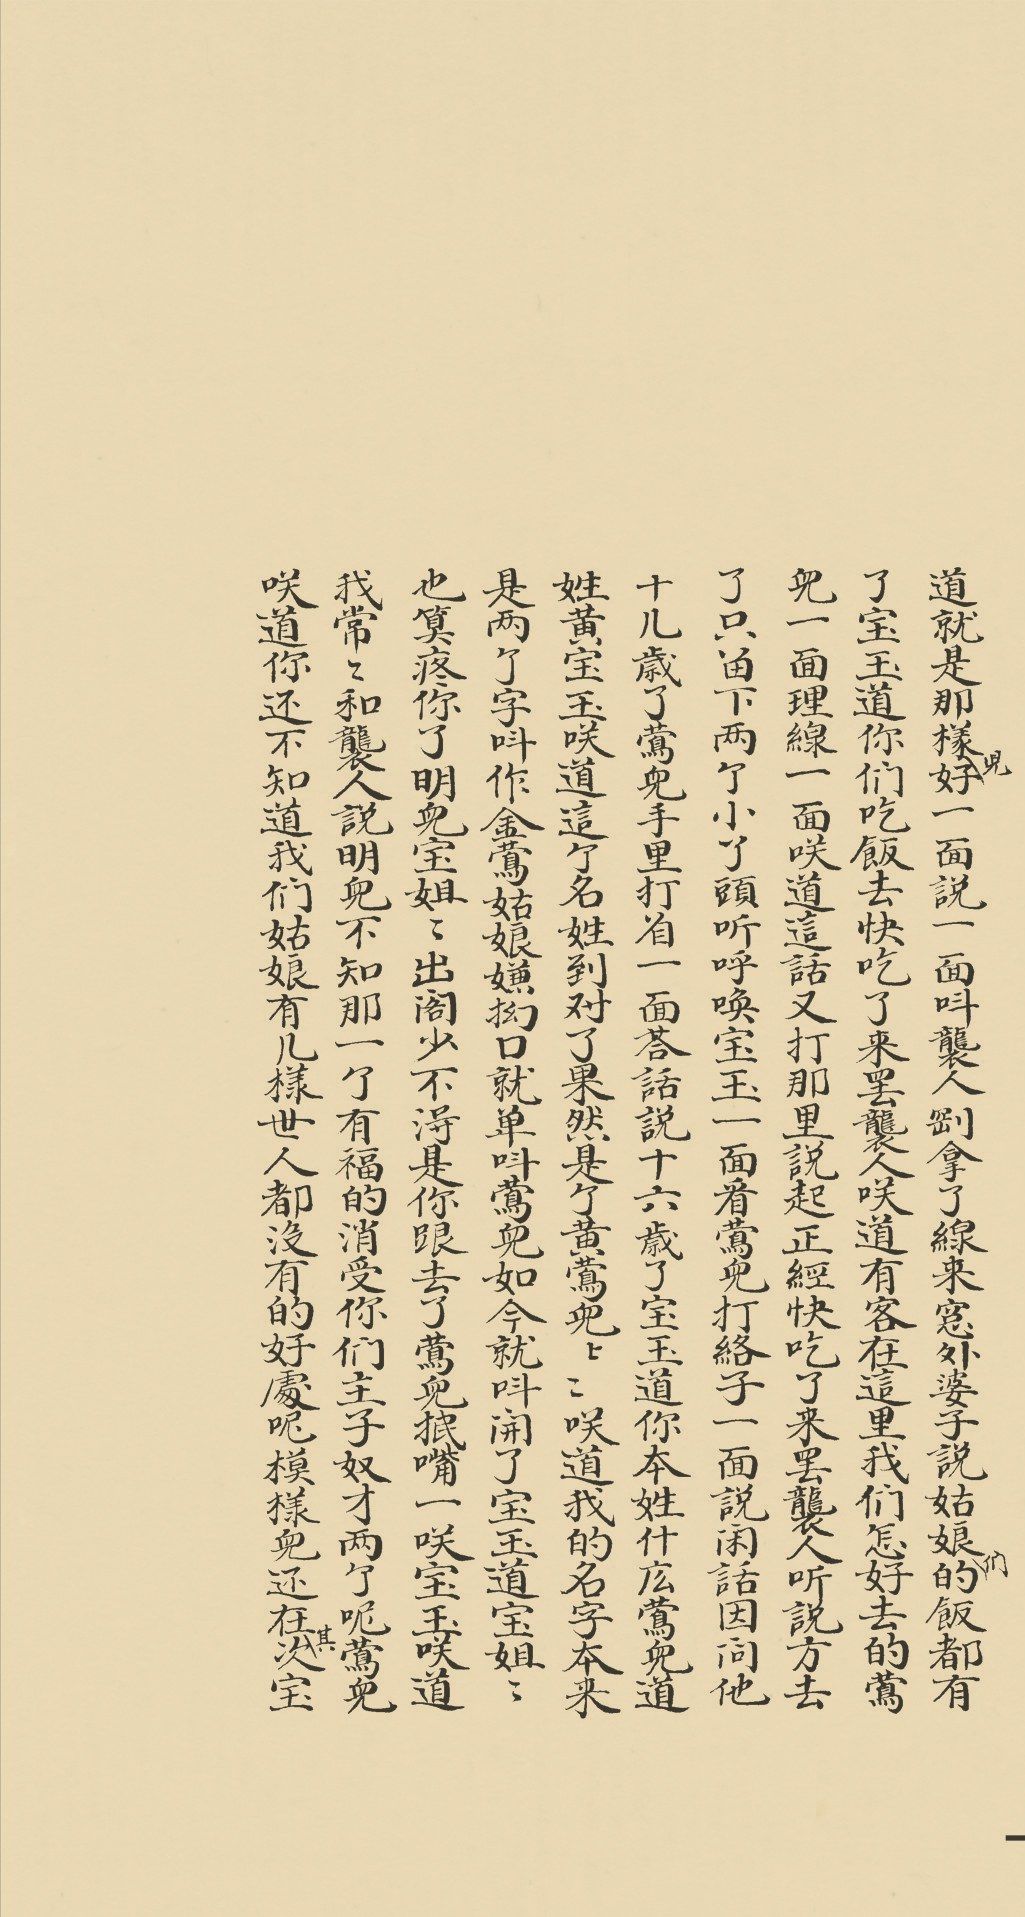 道就是那樣兒好一面說一面呌襲人剛拿了線来窓外婆子說姑娘们的飯都有
了宝玉道你们吃飯去快吃了来罢襲人咲道有客在這里我们怎好去的鶯
兒一面理線一面咲道這話又打那里說起正經快吃了来罢襲人听說方去
了只畄下两个小丫頭听呼喚宝玉一面看鶯兒打絡子一面說闲話因问他
十几歲了鶯兒手里打着一面荅話說十六歲了宝玉道你本姓什庅鶯兒道
姓黄宝玉咲道這个名姓到对了果然是个黄鶯兒〻〻咲道我的名字本来
是两个字呌作金鶯姑娘嫌拗口就单呌鶯兒如今就呌開了宝玉道宝姐〻
也算疼你了明兒宝姐〻出阁少不淂是你跟去了鶯兒抿嘴一咲宝玉咲道
我常〻和襲人說明兒不知那一个有福的消受你们主子奴才两个呢鶯兒
咲道你还不知道我们姑娘有几樣世人都没有的好處呢模樣兒还在其次宝